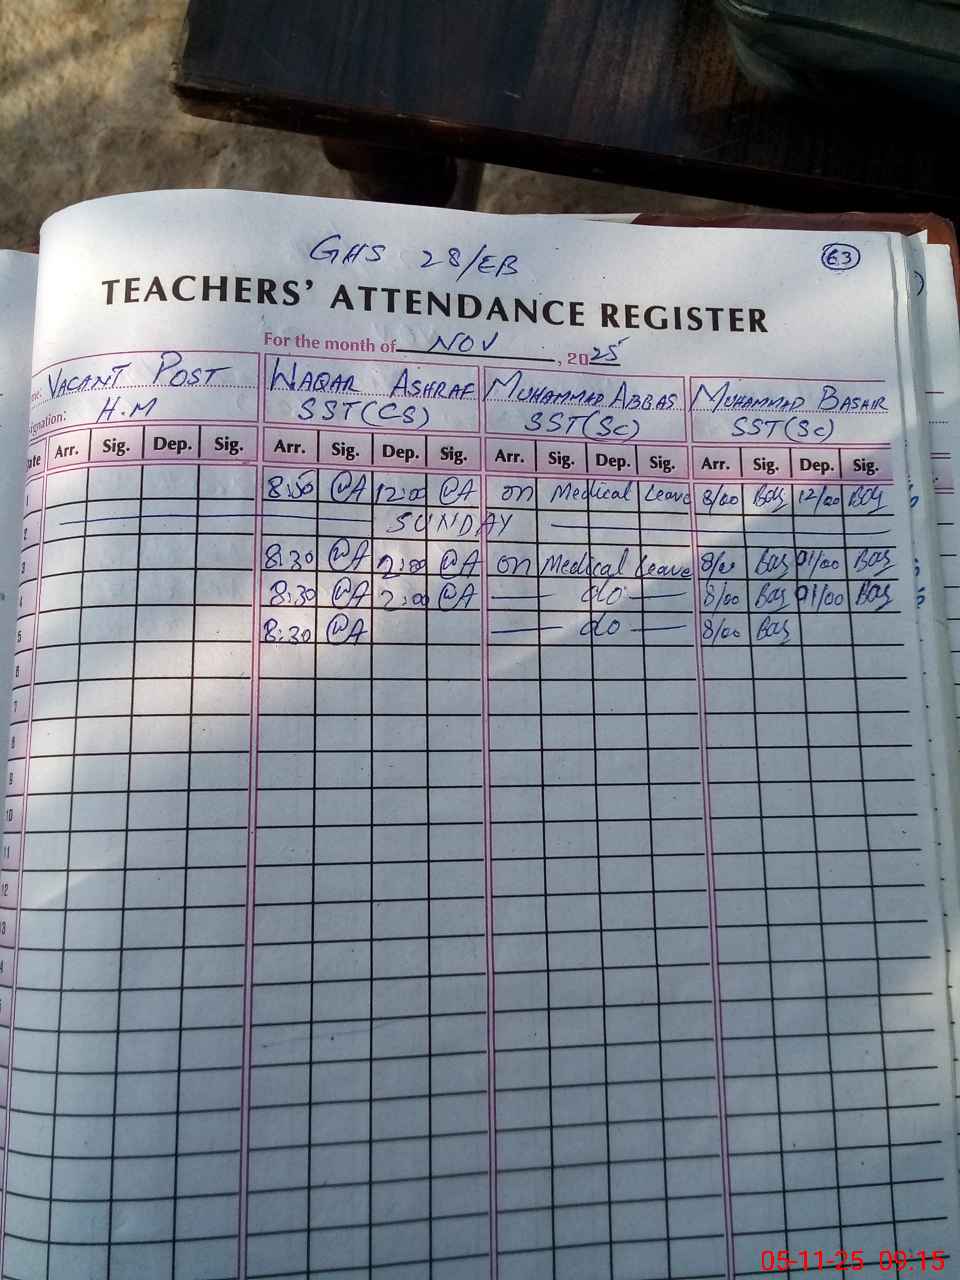 GHS 28/EB
63
TEACHERS' ATTENDANCE REGISTER
For the month of NOV, 2025
VACANT POST WAQAR ASHRAF MUHAMMAD ABBAS MUHAMMAD BASHIR
H.M SST(CS) SST(Sc) SST(Sc)
Arr. Sig. Dep. Sig. Arr. Sig. Dep. Sig. Arr. Sig. Dep. Sig. Arr. Sig. Dep. Sig.
1 8:50 12:00 on Medical Leave 8/00 12/00
2 SUNDAY
3 8:30 2:00 on Medical Leave 8/00 01/00
4 8:30 2:00 do 8/00 01/00
5 8:30 do 8/00
6
7
8
9
10
11
12
05-11-25 09:15